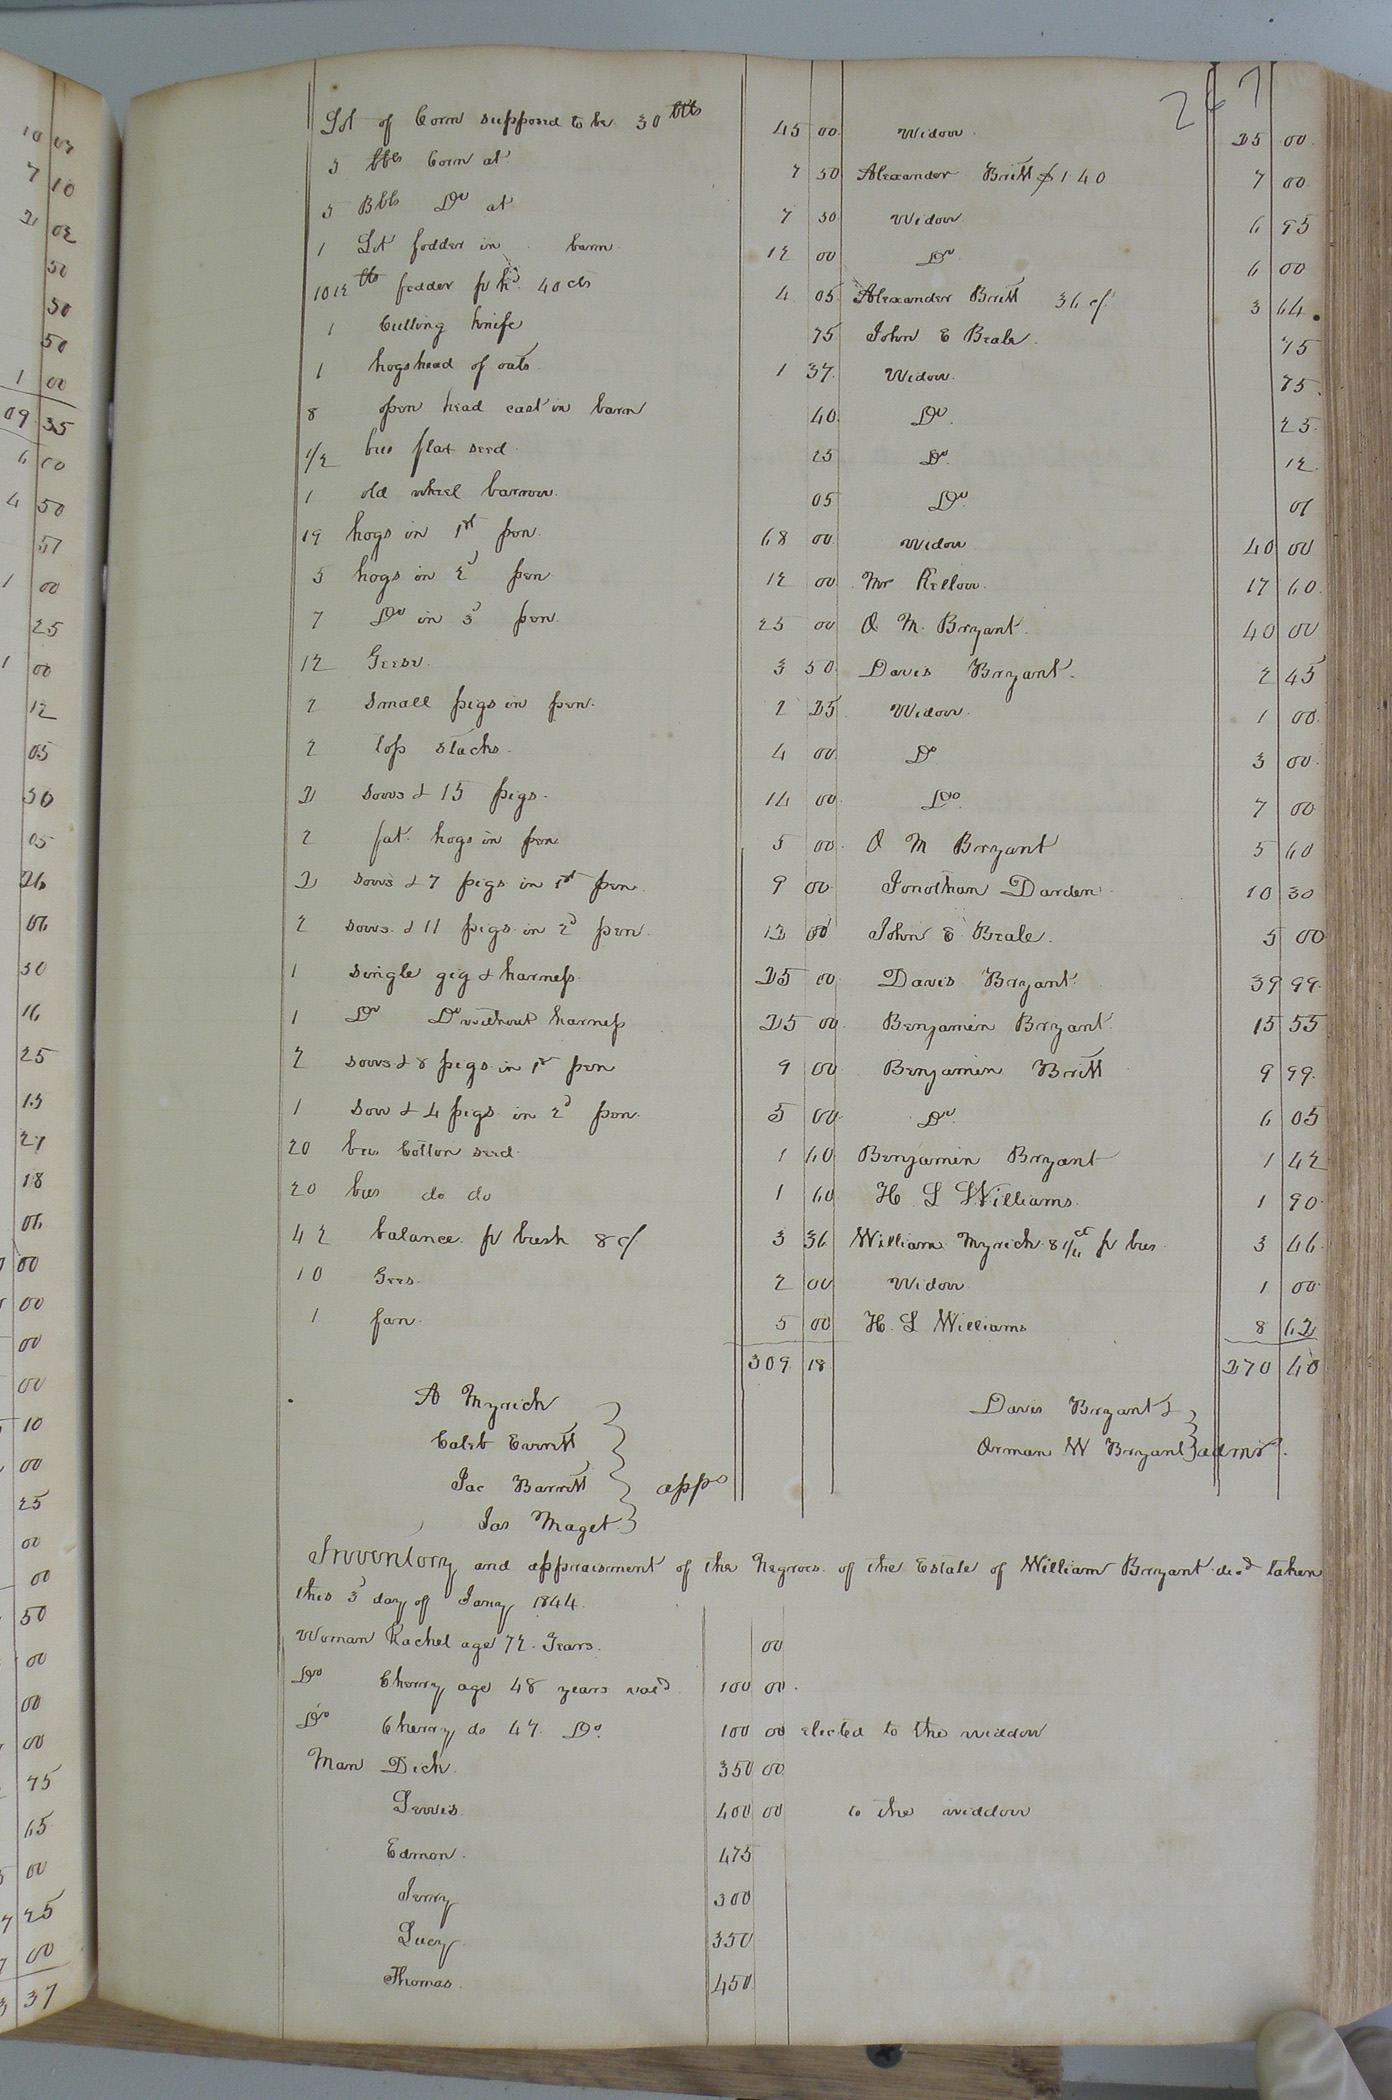 267
Lot of Corn supposed to be 30 bbls 45 00 Widow 35 00
5 bbls Corn at 7 50 Alexander Britt $1 40 7 00
5 Bbls Do at 7 50 Widow 6 95
1 Lot fodder in barn 12 00 Do 6 00
1012 lbs fodder pr hd 40 cts 4 05 Alexander Britt 36 c/ 3 64
1 Cutting knife 75 John E Beale 75
1 hogshead of oats 1 37 Widow 75
8 open head cast in barn 40 Do 25
1/2 bus flax seed 25 Do 12
1 old wheel barrow 05 Do 01
19 hogs in 1st pen 68 00 Widow 40 00
5 hogs in 2d pen 12 00 Mr Kellow 17 60
7 Do in 3d pen 25 00 O M Bryant 40 00
12 Geese 3 50 Davis Bryant 2 45
2 small pigs in pen 2 25 Widow 1 00
2 top stacks 4 00 Do 3 00
3 sows & 15 pigs 14 00 Do 7 00
2 fat hogs in pen 5 00 O M Bryant 5 60
3 sows & 7 pigs in 1st pen 9 00 Jonothan Darden 10 30
2 sows & 11 pigs in 2d pen 13 00 John E Beale 5 00
1 single gig & harness 35 00 Davis Bryant 39 99
1 Do Do without harness 35 00 Benjamin Bryant 15 55
2 sows & 8 pigs in 1st pen 9 00 Benjamin Britt 9 99
1 sow & 4 pigs in 2d pen 5 00 Do 6 05
20 bus Cotton seed 1 60 Benjamin Bryant 1 42
20 bus do do 1 60 H L Williams 1 90
42 balance pr bush 8 c/ 3 36 William Myrick 8 1/4 ct pr bus 3 46
10 Gees 2 00 Widow 1 00
1 fan 5 00 H. L Williams 8 63
309 18 370 40
A Myrick Davis Bryant &
Caleb Everitt Orman W Bryant admr
Jac Barrett apps
Jas Maget
Inventory and appraisment of the Negroes of the Estate of William Bryant decd taken
this 3d day of Jany 1844
Woman Rachel age 72 Years 00
Do Cherry age 48 years vald 100 00
Do Cherry do 47 Do 100 00 elected to the widdow
Man Dick 350 00
Lewis 400 00 to the widdow
Edmon 475
Jerry 300
Lucy 350
Thomas 450